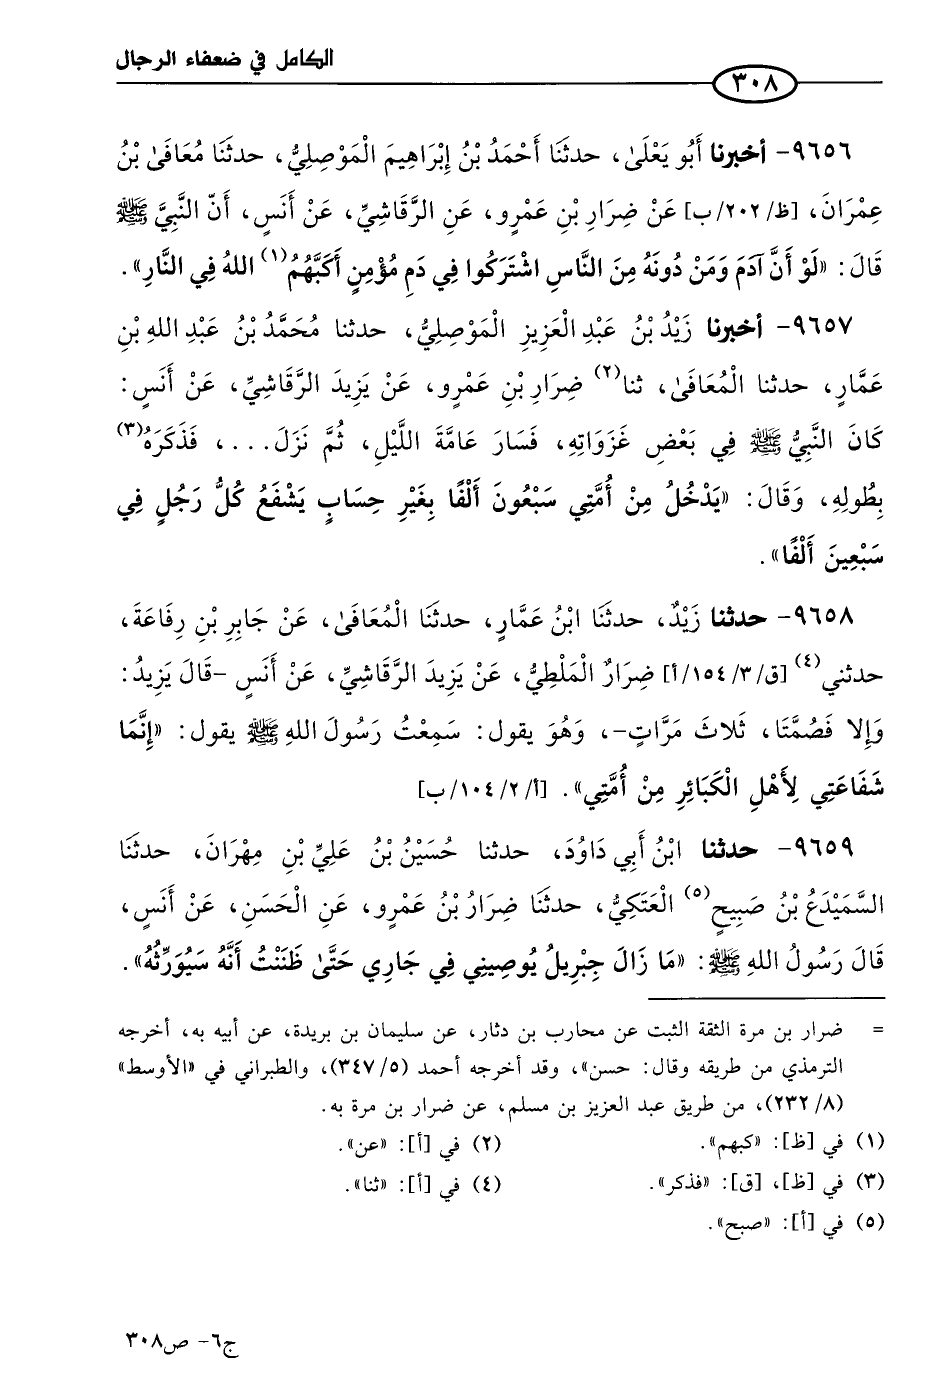 الكامل في ضعفاء الرجال
٣٠٨
٩٦٥٦- أخبرنا أَبُو يَعْلَىٰ، حدثنَا أَحْمَدُ بْنُ إِبْرَاهِيمَ الْمَوْصِلِيُّ، حدثنَا مُعَافَىٰ بْنُ
عِمْرَانَ، [ظ/ ٢٠٢/ب] عَنْ ضِرَارِ بْنِ عَمْرٍو، عَنِ الرَّقَاشِيِّ، عَنْ أَنَسٍ، أَنّ النَّبِيَّ ﷺ
قَالَ: «لَوْ أَنَّ آدَمَ وَمَنْ دُونَهُ مِنَ النَّاسِ اشْتَرَكُوا فِي دَمِ مُؤْمِنٍ أَكَبَّهُمُ(١) اللهُ فِي النَّارِ».
٩٦٥٧- أخبرنا زَيْدُ بْنُ عَبْدِ الْعَزِيزِ الْمَوْصِلِيُّ، حدثنا مُحَمَّدُ بْنُ عَبْدِ اللهِ بْنِ
عَمَّارٍ، حدثنا الْمُعَافَىٰ، ثنا(٢) ضِرَارِ بْنِ عَمْرٍو، عَنْ يَزِيدَ الرَّقَاشِيِّ، عَنْ أَنَسٍ:
كَانَ النَّبِيُّ ﷺ فِي بَعْضِ غَزَوَاتِهِ، فَسَارَ عَامَّةَ اللَّيْلِ، ثُمَّ نَزَلَ...، فَذَكَرَهُ(٣)
بِطُولِهِ، وَقَالَ: «يَدْخُلُ مِنْ أُمَّتِي سَبْعُونَ أَلْفًا بِغَيْرِ حِسَابٍ يَشْفَعُ كُلُّ رَجُلٍ فِي
سَبْعِينَ أَلْفًا».
٩٦٥٨- حدثنا زَيْدٌ، حدثنَا ابْنُ عَمَّارٍ، حدثنَا الْمُعَافَىٰ، عَنْ جَابِرِ بْنِ رِفَاعَةَ،
حدثني(٤) [ق/ ٣/ ١٥٤/أ] ضِرَارٌ الْمَلْطِيُّ، عَنْ يَزِيدَ الرَّقَاشِيِّ، عَنْ أَنَسٍ -قَالَ يَزِيدُ:
وَإِلا فَصُمَّتَا، ثَلاثَ مَرَّاتٍ-، وَهُوَ يقول: سَمِعْتُ رَسُولَ اللهِ ﷺ يقول: «إِنَّمَا
شَفَاعَتِي لِأَهْلِ الْكَبَائِرِ مِنْ أُمَّتِي». [أ/ ٢/ ١٠٤/ب]
٩٦٥٩- حدثنا ابْنُ أَبِي دَاوُدَ، حدثنا حُسَيْنُ بْنُ عَلِيِّ بْنِ مِهْرَانَ، حدثنَا
السَّمَيْدَعُ بْنُ صَبِيحٍ(٥) الْعَتَكِيُّ، حدثنَا ضِرَارُ بْنُ عَمْرٍو، عَنِ الْحَسَنِ، عَنْ أَنَسٍ،
قَالَ رَسُولُ اللهِ ﷺ: «مَا زَالَ جِبْرِيلُ يُوصِينِي فِي جَارِي حَتَّىٰ ظَنَنْتُ أَنَّهُ سَيُوَرِّثُهُ».
= ضرار بن مرة الثقة الثبت عن محارب بن دثار، عن سليمان بن بريدة، عن أبيه به، أخرجه
الترمذي من طريقه وقال: حسن»، وقد أخرجه أحمد (٥/ ٣٤٧)، والطبراني في «الأوسط»
(٨/ ٢٣٢)، من طريق عبد العزيز بن مسلم، عن ضرار بن مرة به.
(١) في [ظ]: «كبهم». (٢) في [أ]: «عن».
(٣) في [ظ]، [ق]: «فذكر». (٤) في [أ]: «ثنا».
(٥) في [أ]: «صبح».
ج٦- ص٣٠٨